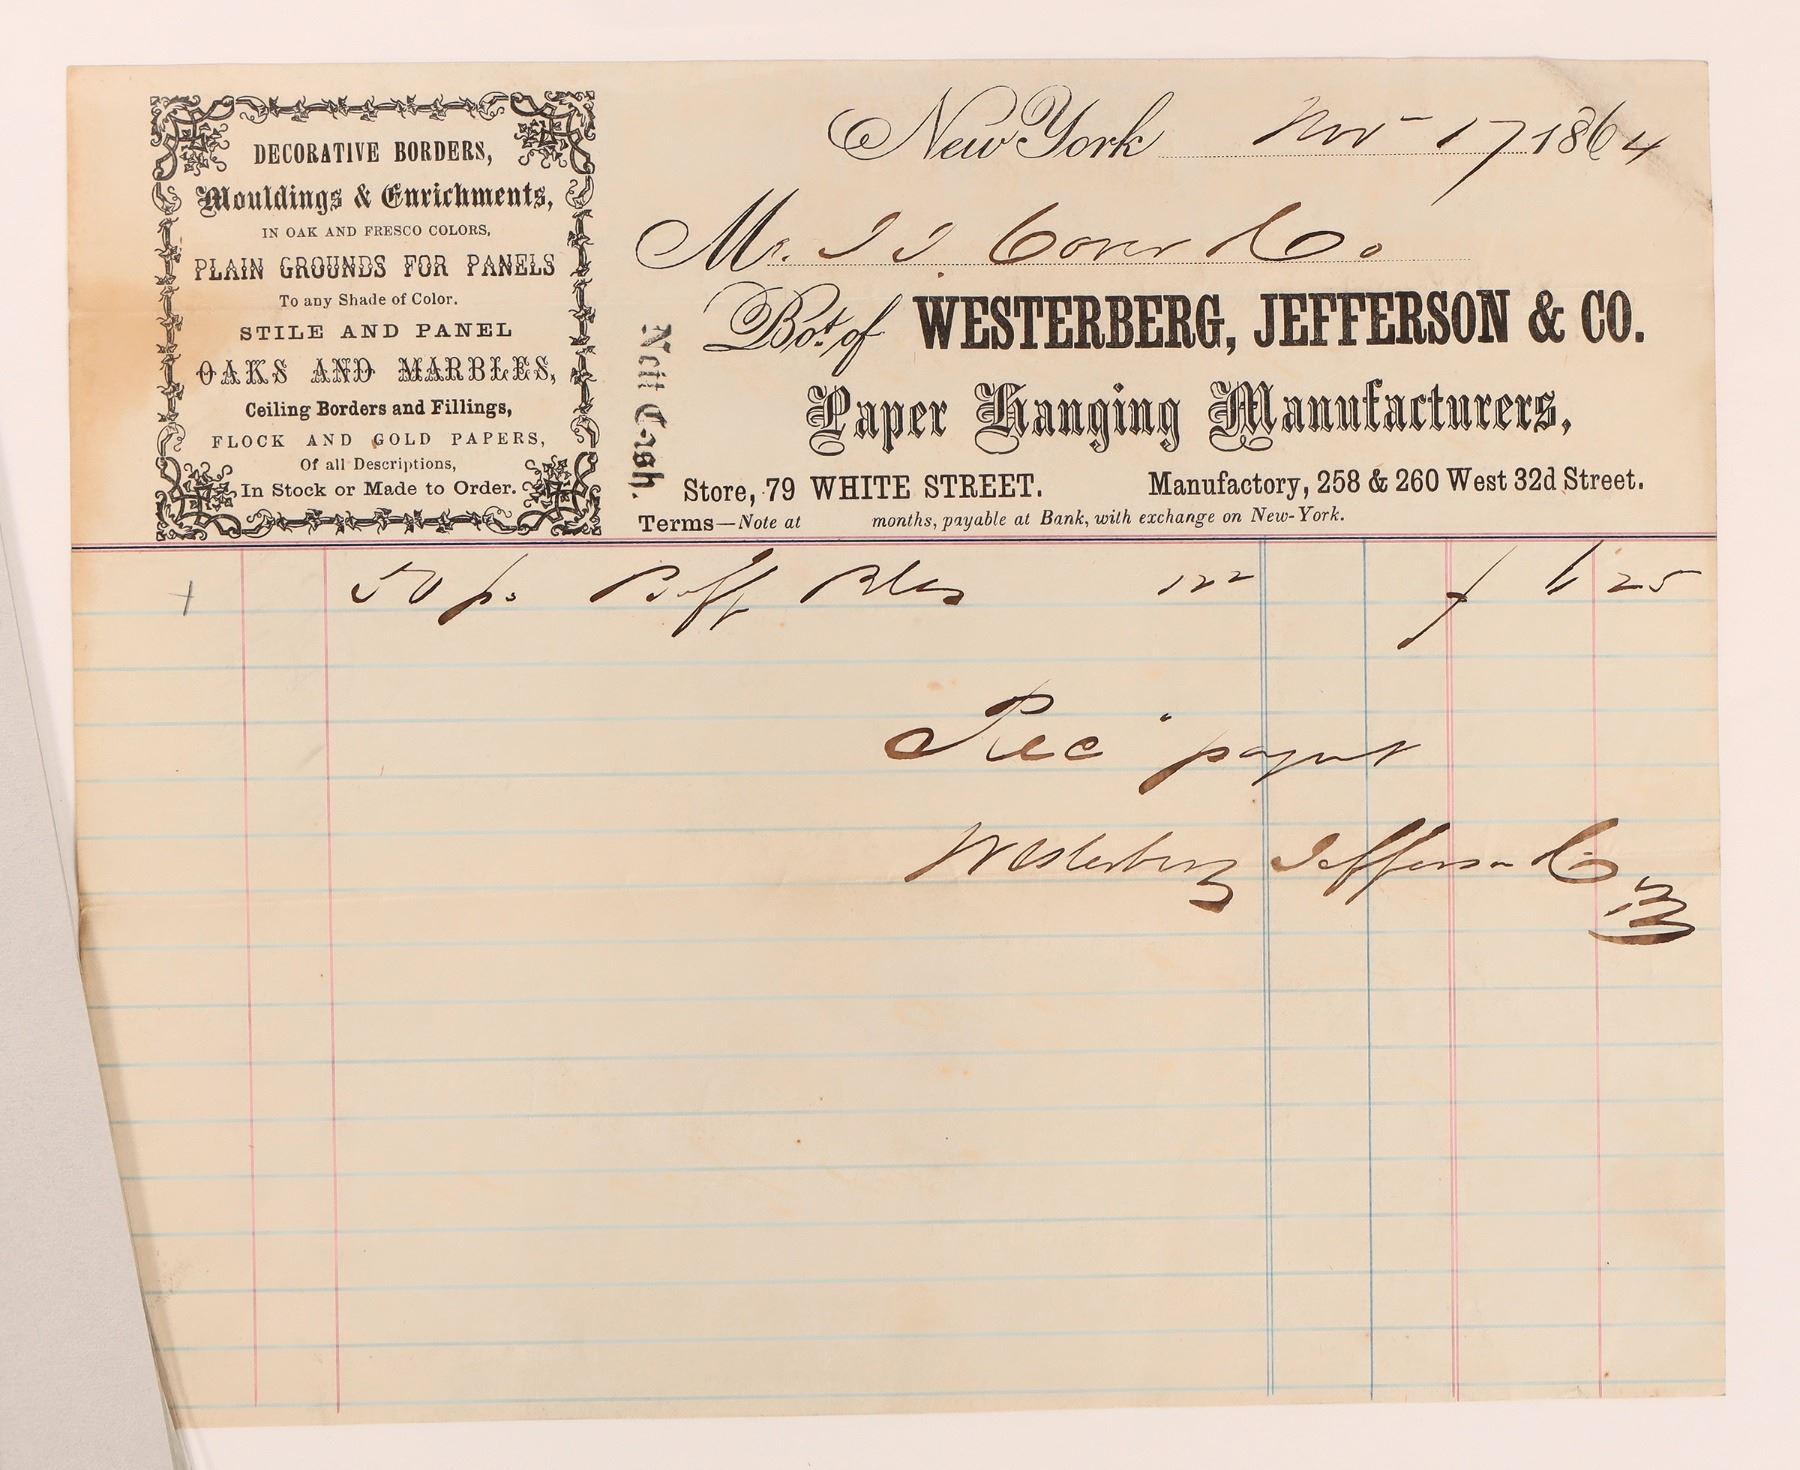 DECORATIVE BORDERS,
Mouldings & Enrichments,
IN OAK AND FRESCO COLORS,
PLAIN GROUNDS FOR PANELS
To any Shade of Color.
STILE AND PANEL
OAKS AND MARBLES,
Ceiling Borders and Fillings,
FLOCK AND GOLD PAPERS,
Of all Descriptions,
In Stock or Made to Order.
New York Nov 17 1864
M
Bot. of WESTERBERG, JEFFERSON & CO.
Paper Hanging Manufacturers,
Nett Cash.
Store, 79 WHITE STREET. Manufactory, 258 & 260 West 32d Street.
Terms—Note at months, payable at Bank, with exchange on New-York.
50 ps Buff 12 2 25
Rec paymt
Westerberg Jefferson & Co